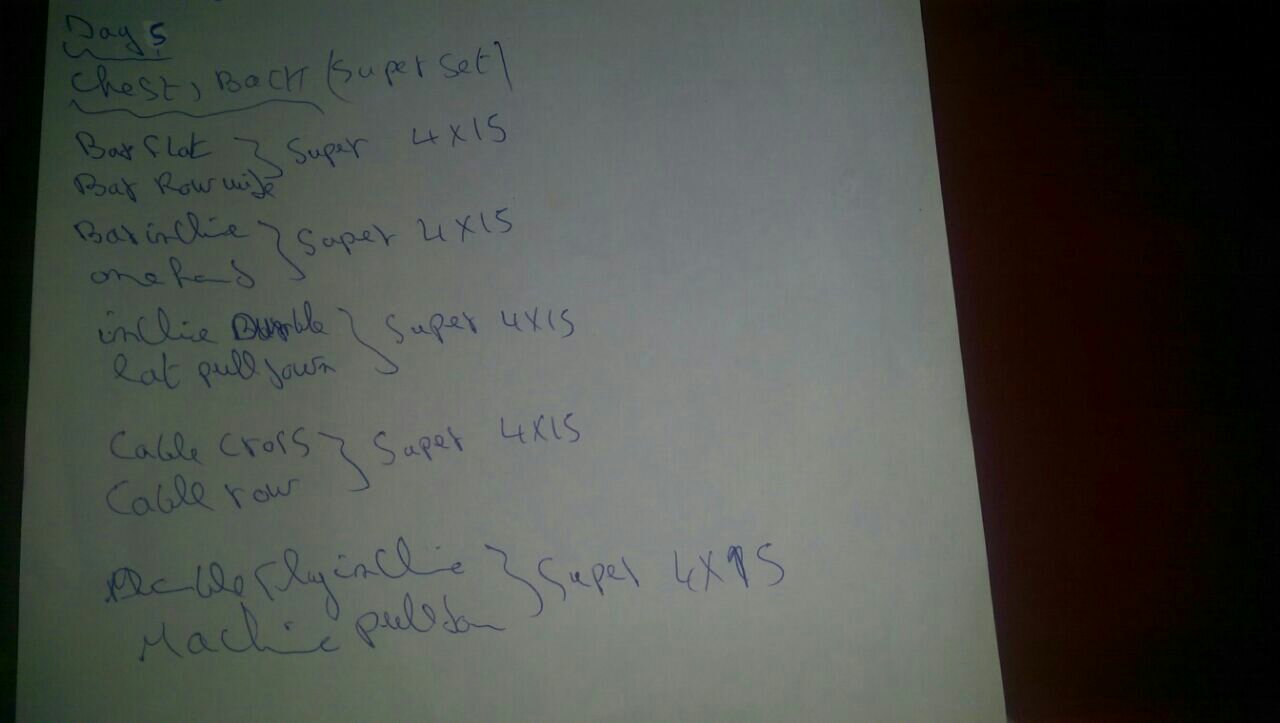 Day 5
Chest, Back (Super set)
Bar flat } Super 4x15
Bar Row wide
Bar incline } Super 4x15
one hand
incline Dumble } Super 4x15
lat pull down
Cable cross } Super 4x15
Cable row
fly incline } Super 4x15
Machine pull